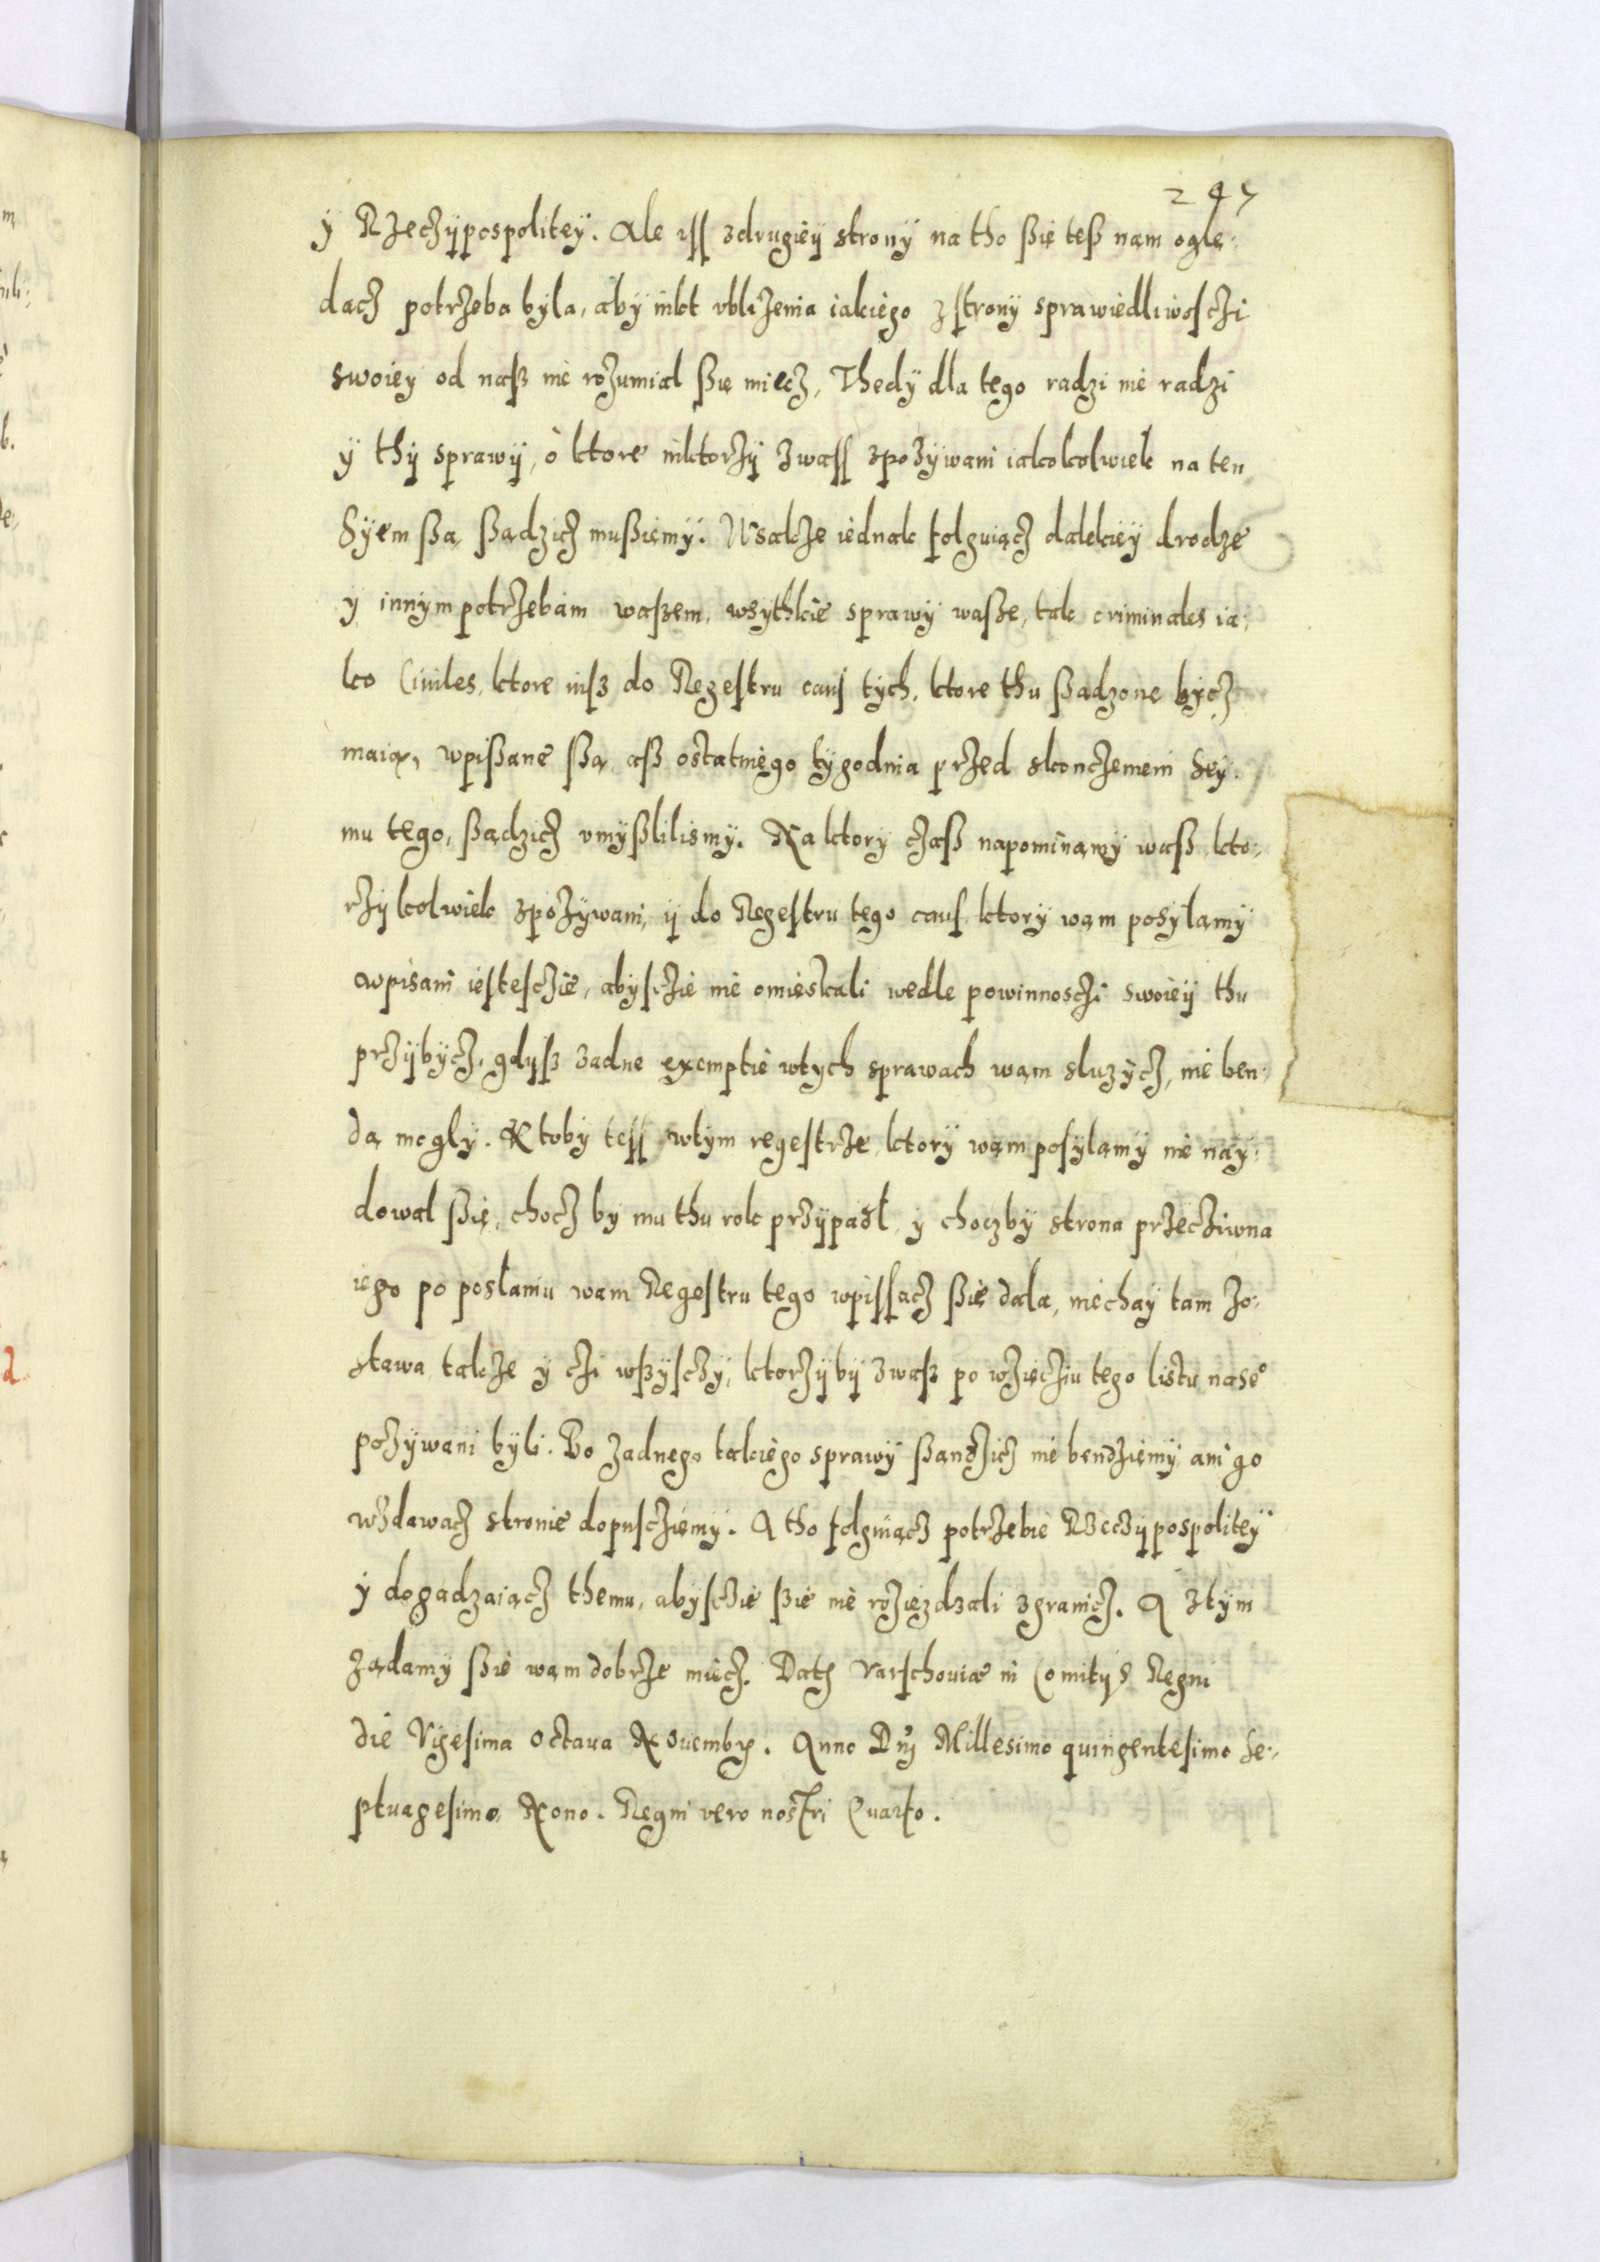 247
ÿ Rzeczÿpospoliteÿ. Ale ısſ zdrugieÿ stronÿ na tho ßię teß nam oglę-
dacz potrzeba była, abÿ nikt vbliżenia iakiego zſtronÿ sprawiedliwoſczi
swoieÿ od naß nie rozumiał ßię miecz, Thedÿ dla tego radzi nie radzi
ÿ thÿ sprawÿ, o ktore niktorzÿ zwaſſ zpozÿwani iakokolwiek na ten
Sÿem ßą, ßądzicz mußięmÿ. Wsakże iednak folguiącz dalekieÿ drodze
ÿ innÿm potrzebam waßem, wsÿthkie sprawÿ waße, tak criminales ia-
ko Ciuiles, ktore iusz do Regeſtru cauſ tÿch, ktore thu ßądzone bÿcz
maią, wpißane ßą, aß ostatniego tÿgodnia przed skonczeniem Seÿ-
mu tego, ßądzicz vmÿßlilismÿ. Na ktorÿ czaß napominamÿ waß, kto-
rzÿkolwiek zpozÿwani, ÿ do Regeſtru tego cauſ ktorÿ wam posÿłamÿ
wpisani ieſteſczie, abÿſczie nie omieskali wedle powinnosczi swoieÿ thu
przÿbÿcz, gdÿsz żadne exemptie wtÿch sprawach wam służÿcz, nie ben-
dą mogłÿ. Ktobÿ teſſ wtÿm regeſtrze, ktorÿ wam poſÿłamÿ nie naÿ-
dował ßię, chocz by mu thu rok przÿpadł, ÿ choczbÿ strona przecziwna
iego po posłaniu wam Regeſtru tego wpiſſacz ßię dała, niechaÿ tam zo-
stawa, także ÿ czi wßÿſczÿ, ktorzÿbÿ zwaß po wzięcziu tego listu nasᵉ°
pozÿwani bÿli. Bo żadnego takiego sprawÿ ßandzicz nie bendziemÿ, ani go
wzdawacz stronie dopuſcziemÿ. A tho folguiącz potrzebie Rzeczÿpospoliteÿ
ÿ dogadzaiącz themu, abÿſczie ßię nie rozięzdzali zgranicz. A ztÿm
żądamÿ ßię wam dobrze miecz. Datӡ Varſchouiæ in Comitÿs Regni
die Vigesima octaua Nouembrꝭ. Anno Dn̄j Millesimo quingentesimo se-
ptuagesimo Nono. Regni vero nostri Quarto.